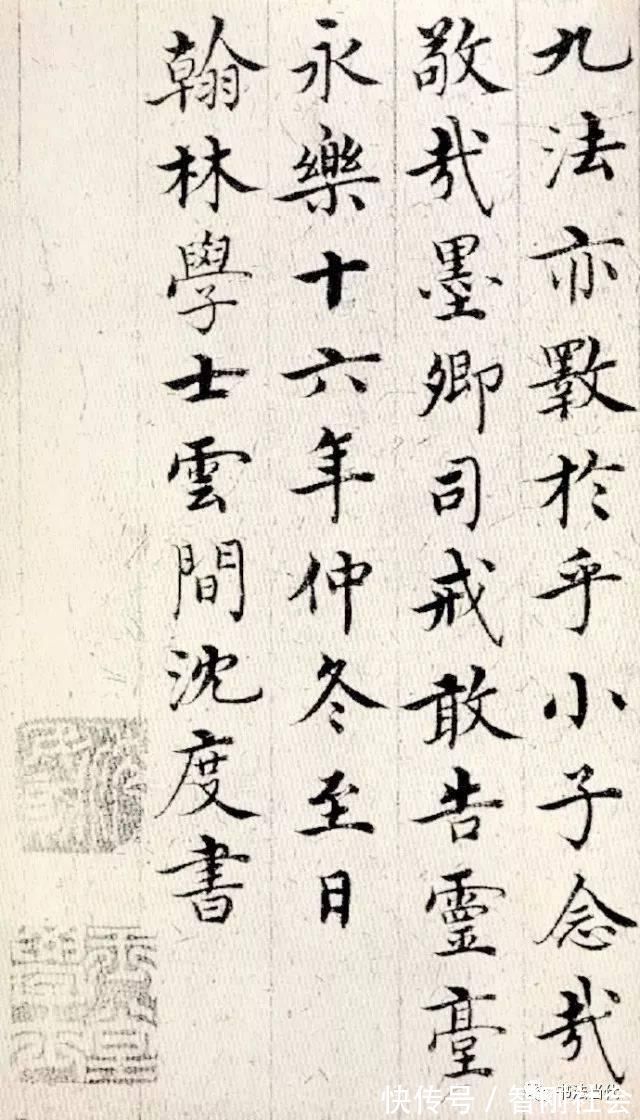 九法亦斁於乎小子念哉
敬哉墨卿司戒敢告靈臺
永樂十六年仲冬至日
翰林學士雲間沈度書
书法当代
快传号/智研社会